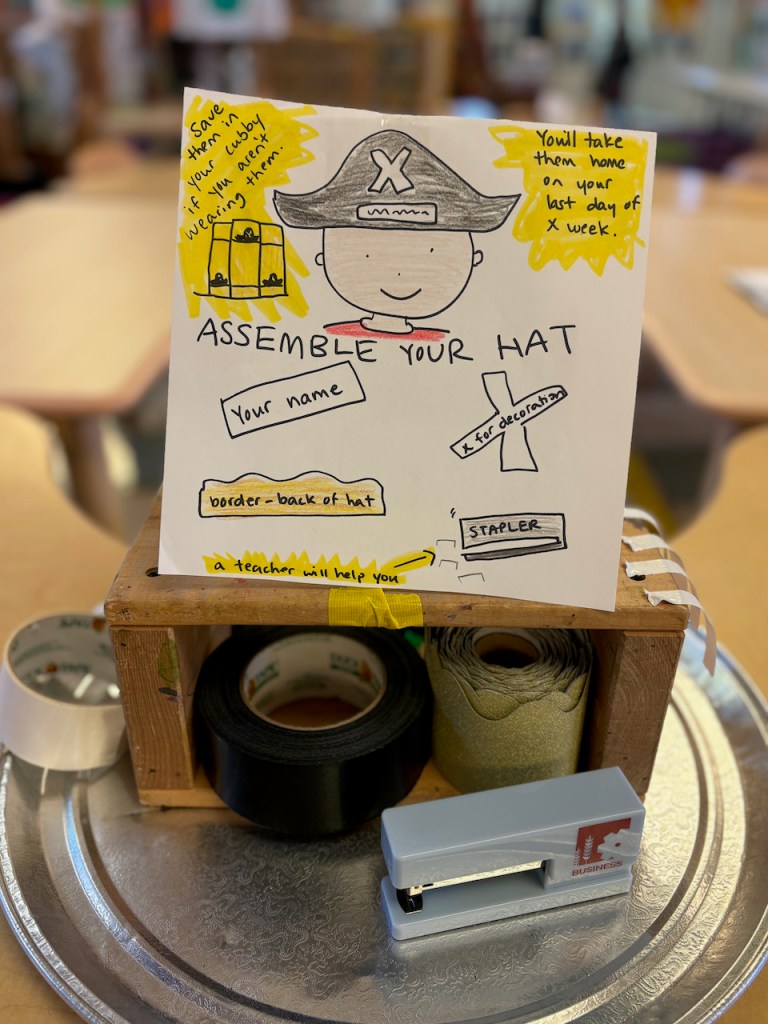 Save
them in
your cubby
if you aren't
wearing them.
You'll take
them home
on your
last day of
X week.
X
ASSEMBLE YOUR HAT
Your name
X for decoration
border - back of hat
STAPLER
a teacher will help you
DUCK
BUSINESS